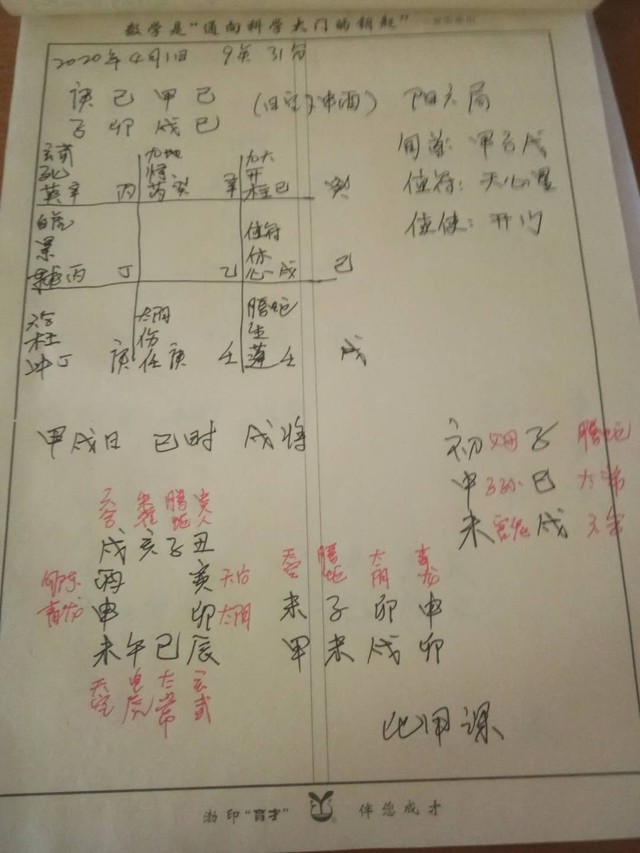 数学是"通向科学大门的钥匙"
2020年4月1日 9点31分
庚己甲己 阳六局
子卯戌巳
旬首:甲子戌
值符:天心星
值使:开门
玄武 九地 九天
死 开
英辛 丙 芮癸 辛 柱己 癸
白虎 值符
景 休
丙 丁 乙 心戌 己
六合 太阴 腾蛇
杜 伤 生
冲丁 庚 任庚 壬 蓬壬 戌
甲戌日 巳时 戌将
初 子 腾蛇
中 子孙 巳 太常
末 戌 六合
六合 朱雀 腾蛇 贵人
戌亥子丑
酉 寅
青龙 申 卯 太阴
未午巳辰
天空 白虎 太常 玄武
天空 腾蛇 太阴 青龙
未子卯申
甲未戌卯
比用课
渤印"育才" 伴您成才